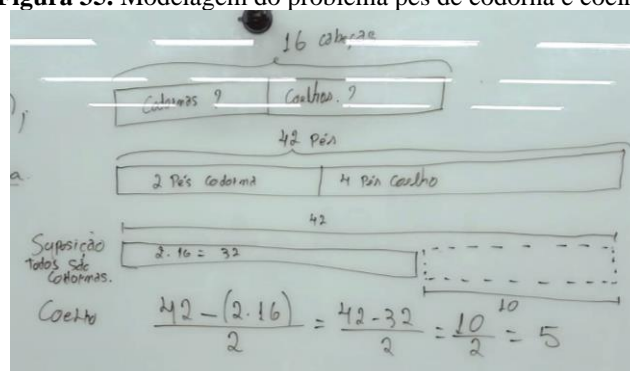 Figura 35. Modelagem do problema pés de codorna e coelho
16 cabeças
Codornas ? Coelhos. ?
42 Pés
a.
2 Pés codorna 4 Pés Coelho
42
Suposição
todos são
codornas.
2.16 = 32
10
Coelho 42-(2.16)/2 = 42-32/2 = 10/2 = 5